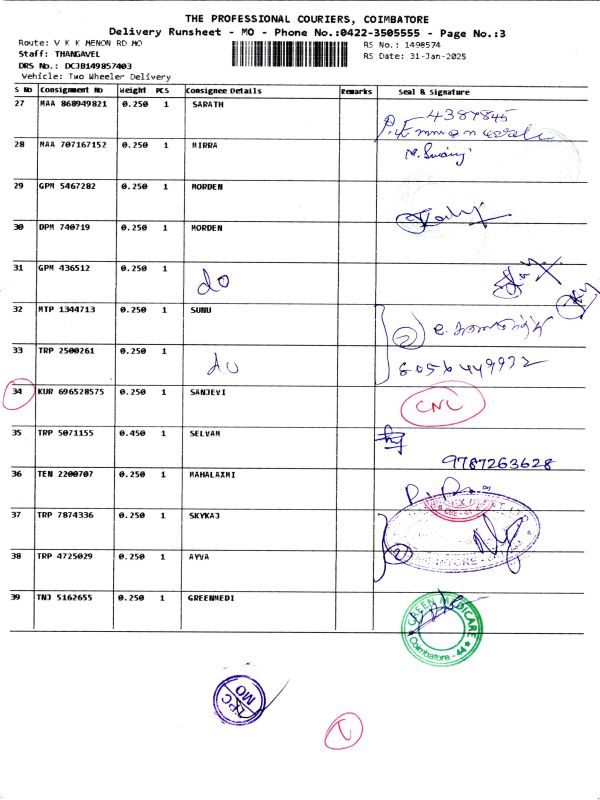 THE PROFESSIONAL COURIERS, COIMBATORE
Delivery Runsheet - MO - Phone No.:0422-3505555 - Page No.:3
Route: V K K MENON RD MO
RS No.: 1498574
Staff: THANGAVEL
RS Date: 31-Jan-2025
DRS No.: DCJB149857403
Vehicle: Two Wheeler Delivery
S No Consignment No Weight PCS Consignee Details Remarks Seal & Signature
27 MAA 868949821 0.250 1 SARATH
4387845
28 MAA 707167152 0.250 1 MIRRA
29 GPM 5467282 0.250 1 MORDEN
30 DPM 740719 0.250 1 MORDEN
31 GPM 436512 0.250 1 do
32 MTP 1344713 0.250 1 SUNU
2
33 TRP 2500261 0.250 1 do
8056449972
34 KUR 696528575 0.250 1 SANJEVI CNL
35 TRP 5071155 0.450 1 SELVAM
9787263628
36 TEN 2200707 0.250 1 MAHALAXMI
37 TRP 7874336 0.250 1 SKYKAJ
38 TRP 4725029 0.250 1 AYVA
2
39 TNJ 5162655 0.250 1 GREENMEDI
GREEN MEDICARE
Coimbatore - 44
TPC
MO